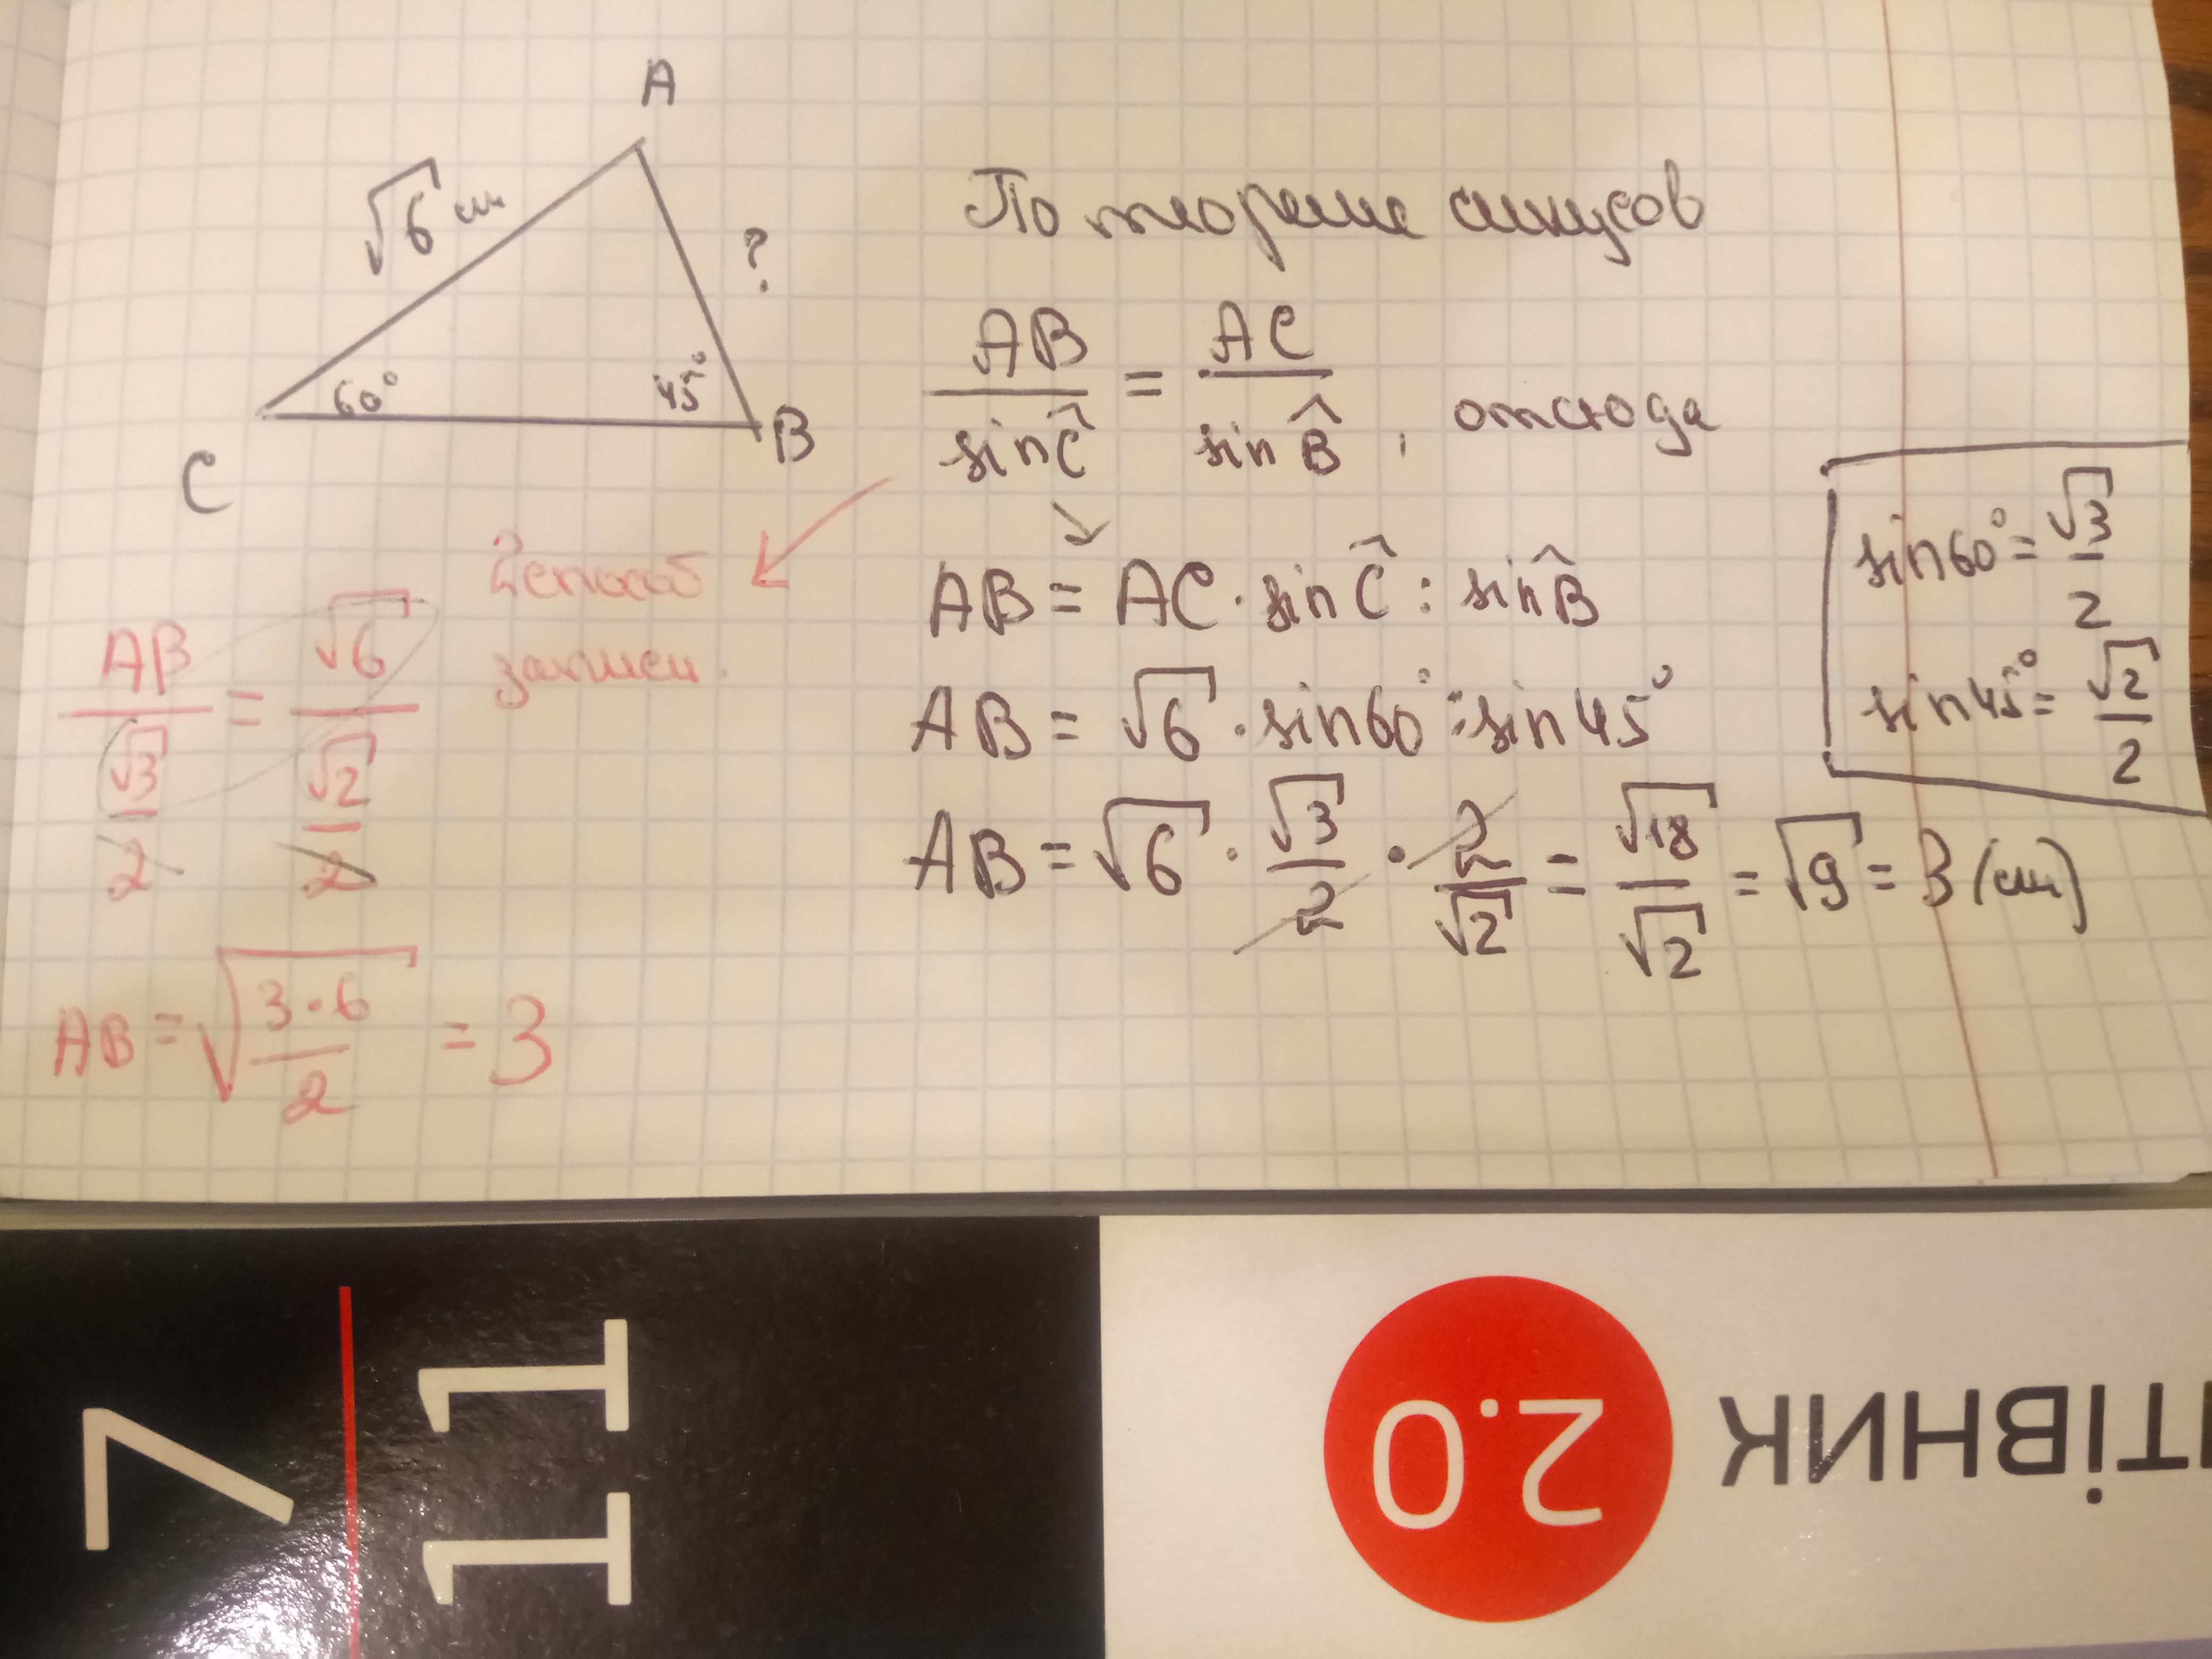 A
√6 см
?
60°
45°
C
B
По теореме синусов
AB/sinĈ = AC/sinB̂, отсюда
AB = AC · sinĈ : sinB̂
AB = √6 · sin60° : sin45°
AB = √6 · √3/2 · 2/√2 = √18/√2 = √9 = 3 (см)
sin60° = √3/2
sin45° = √2/2
2 способ
записи.
AB/(√3/2) = √6/(√2/2)
AB = √(3·6/2) = 3
7
11
2.0
ТІВНИК